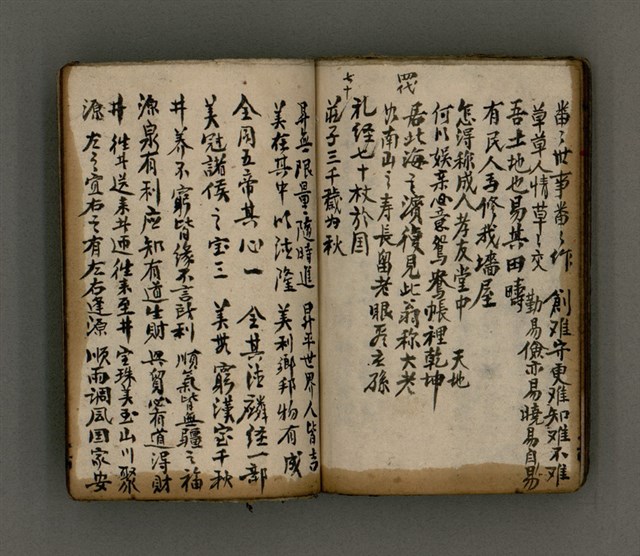 番之世事番之作 創难守更难知难不难
草草人情草之交 勤易儉亦易曉易自易
吾土地也易其田疇
有民人焉修我墻屋
怎得称成人孝友堂中 天地
何以娱亲意鴛鴦帳裡乾坤
居北海之濱復見此翁称大老
如南山之寿長留老眼看玄孫
礼经七十杖於国
莊子三千歲为秋
四代
七十
昇無限量隨時進 昇平世界人皆吉
美在其中以法隆 美利鄉邦物有成
全用五帝其心一 全其法麟经一部
美冠諸侯之宝三 美無窮漢宝千秋
井养不窮皆缘不言所利 順氣皆無疆之福
源泉有利应知有道生財 興貿必有道得財
井 往井送来井通往来至井 宝珠美玉山川聚
源 左之宜右之有左右逢源 順雨調風国家安